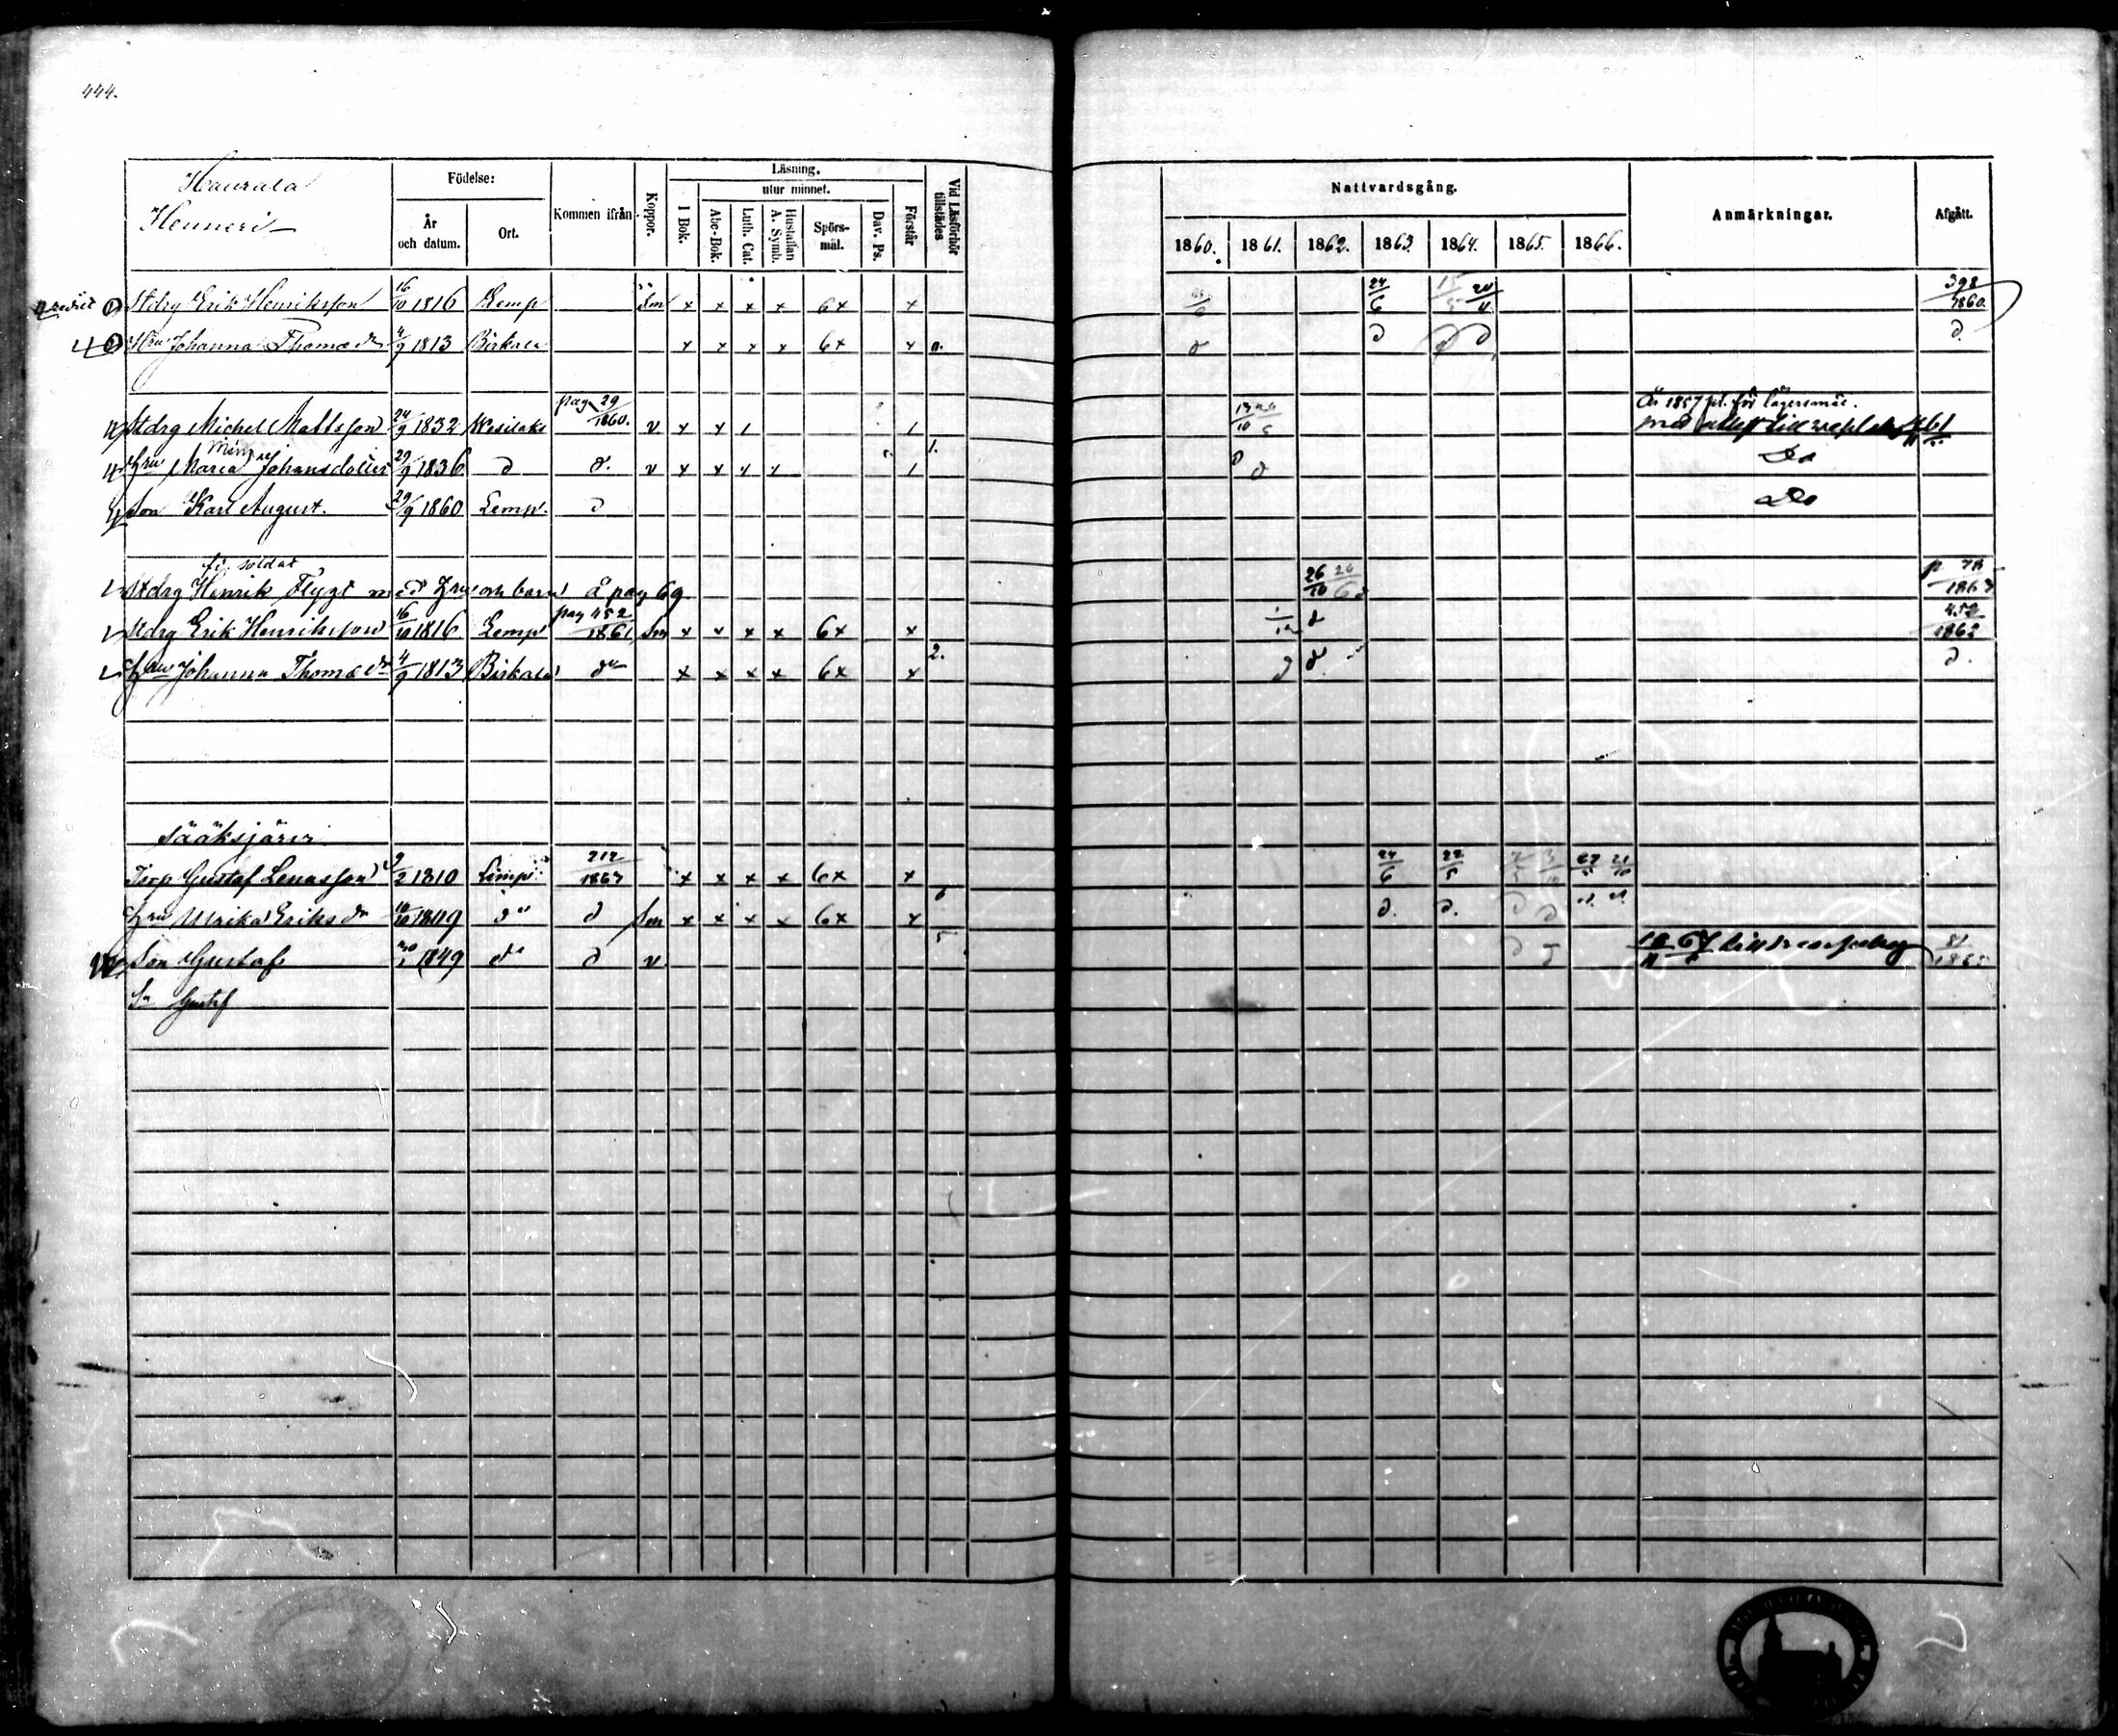 444.
Haurala
Henneri
Födelse:
År och datum.
Ort.
Kommen ifrån
Koppor.
Läsning.
I Bok.
utur minnet.
Abc-Bok.
Luth. Cat.
Hustaflan A. Symb.
Spörsmål.
Dav. Ps.
Förstår
Vid Läsförhör tillstädes
Nattvardsgång.
1860. 1861. 1862. 1863. 1864. 1865. 1866.
Anmärkningar.
Afgått.
Stdrg Erik Henriksson 16/10 1816 Lemp Sm x x x x 6x x 24/6 20/11 398/1860.
Hru Johanna Thomædr 4/9 1813 Birkala x x x x 6x x d d d d.
Stdrg Michel Mattsson 24/9 1832 Wesilaks pag 29/1860. v x x 1 1 År 1857 för
Hru Maria Johansdotter 29/9 1836 d d. v x x x x 1 1. d d Do
Son Karl August. 29/9 1860 Lemp. d Do
f.d. soldat
Stdrg Henrik Flygt med Hru och barn å pag 69 26/10 p. 1863
Stdrg Erik Henriksson 16/10 1816 Lemp pag 452/1861 Sm x x x x 6x x d 452/1862
Hru Johanna Thomædr 4/9 1813 Birkala do x x x x 6x x 2. d d d.
Sääksjärvi
Torp Gustaf Lenasson 1810 Lemp 212/1863 x x x x 6x x 24/6 22/5 21/10
Hru Ulrika Eriksdr do d Sm x x x x 6x x d. d. d d
Son Gustaf 1849 do d v 5 d
Sn Gustaf